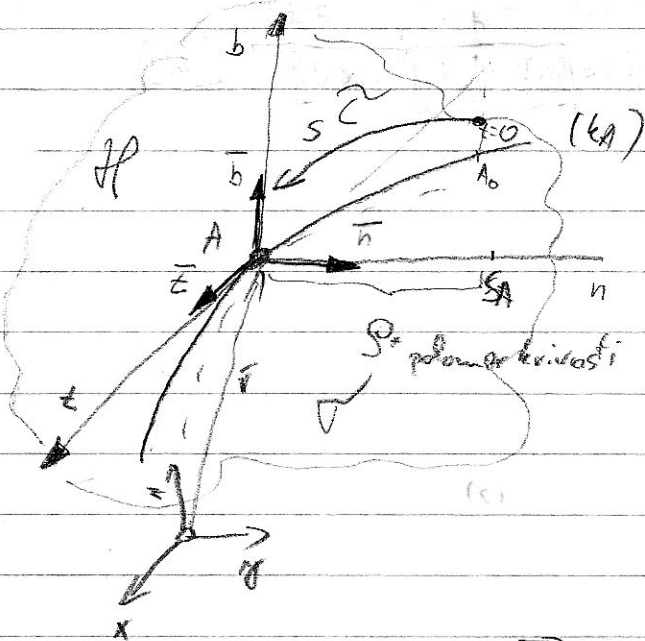 b
s
=0
(k_A)
A_0
b̄
A
n̄
t̄
S_A
n
ρ - polomer krivosti
r̄
t
z
y
x